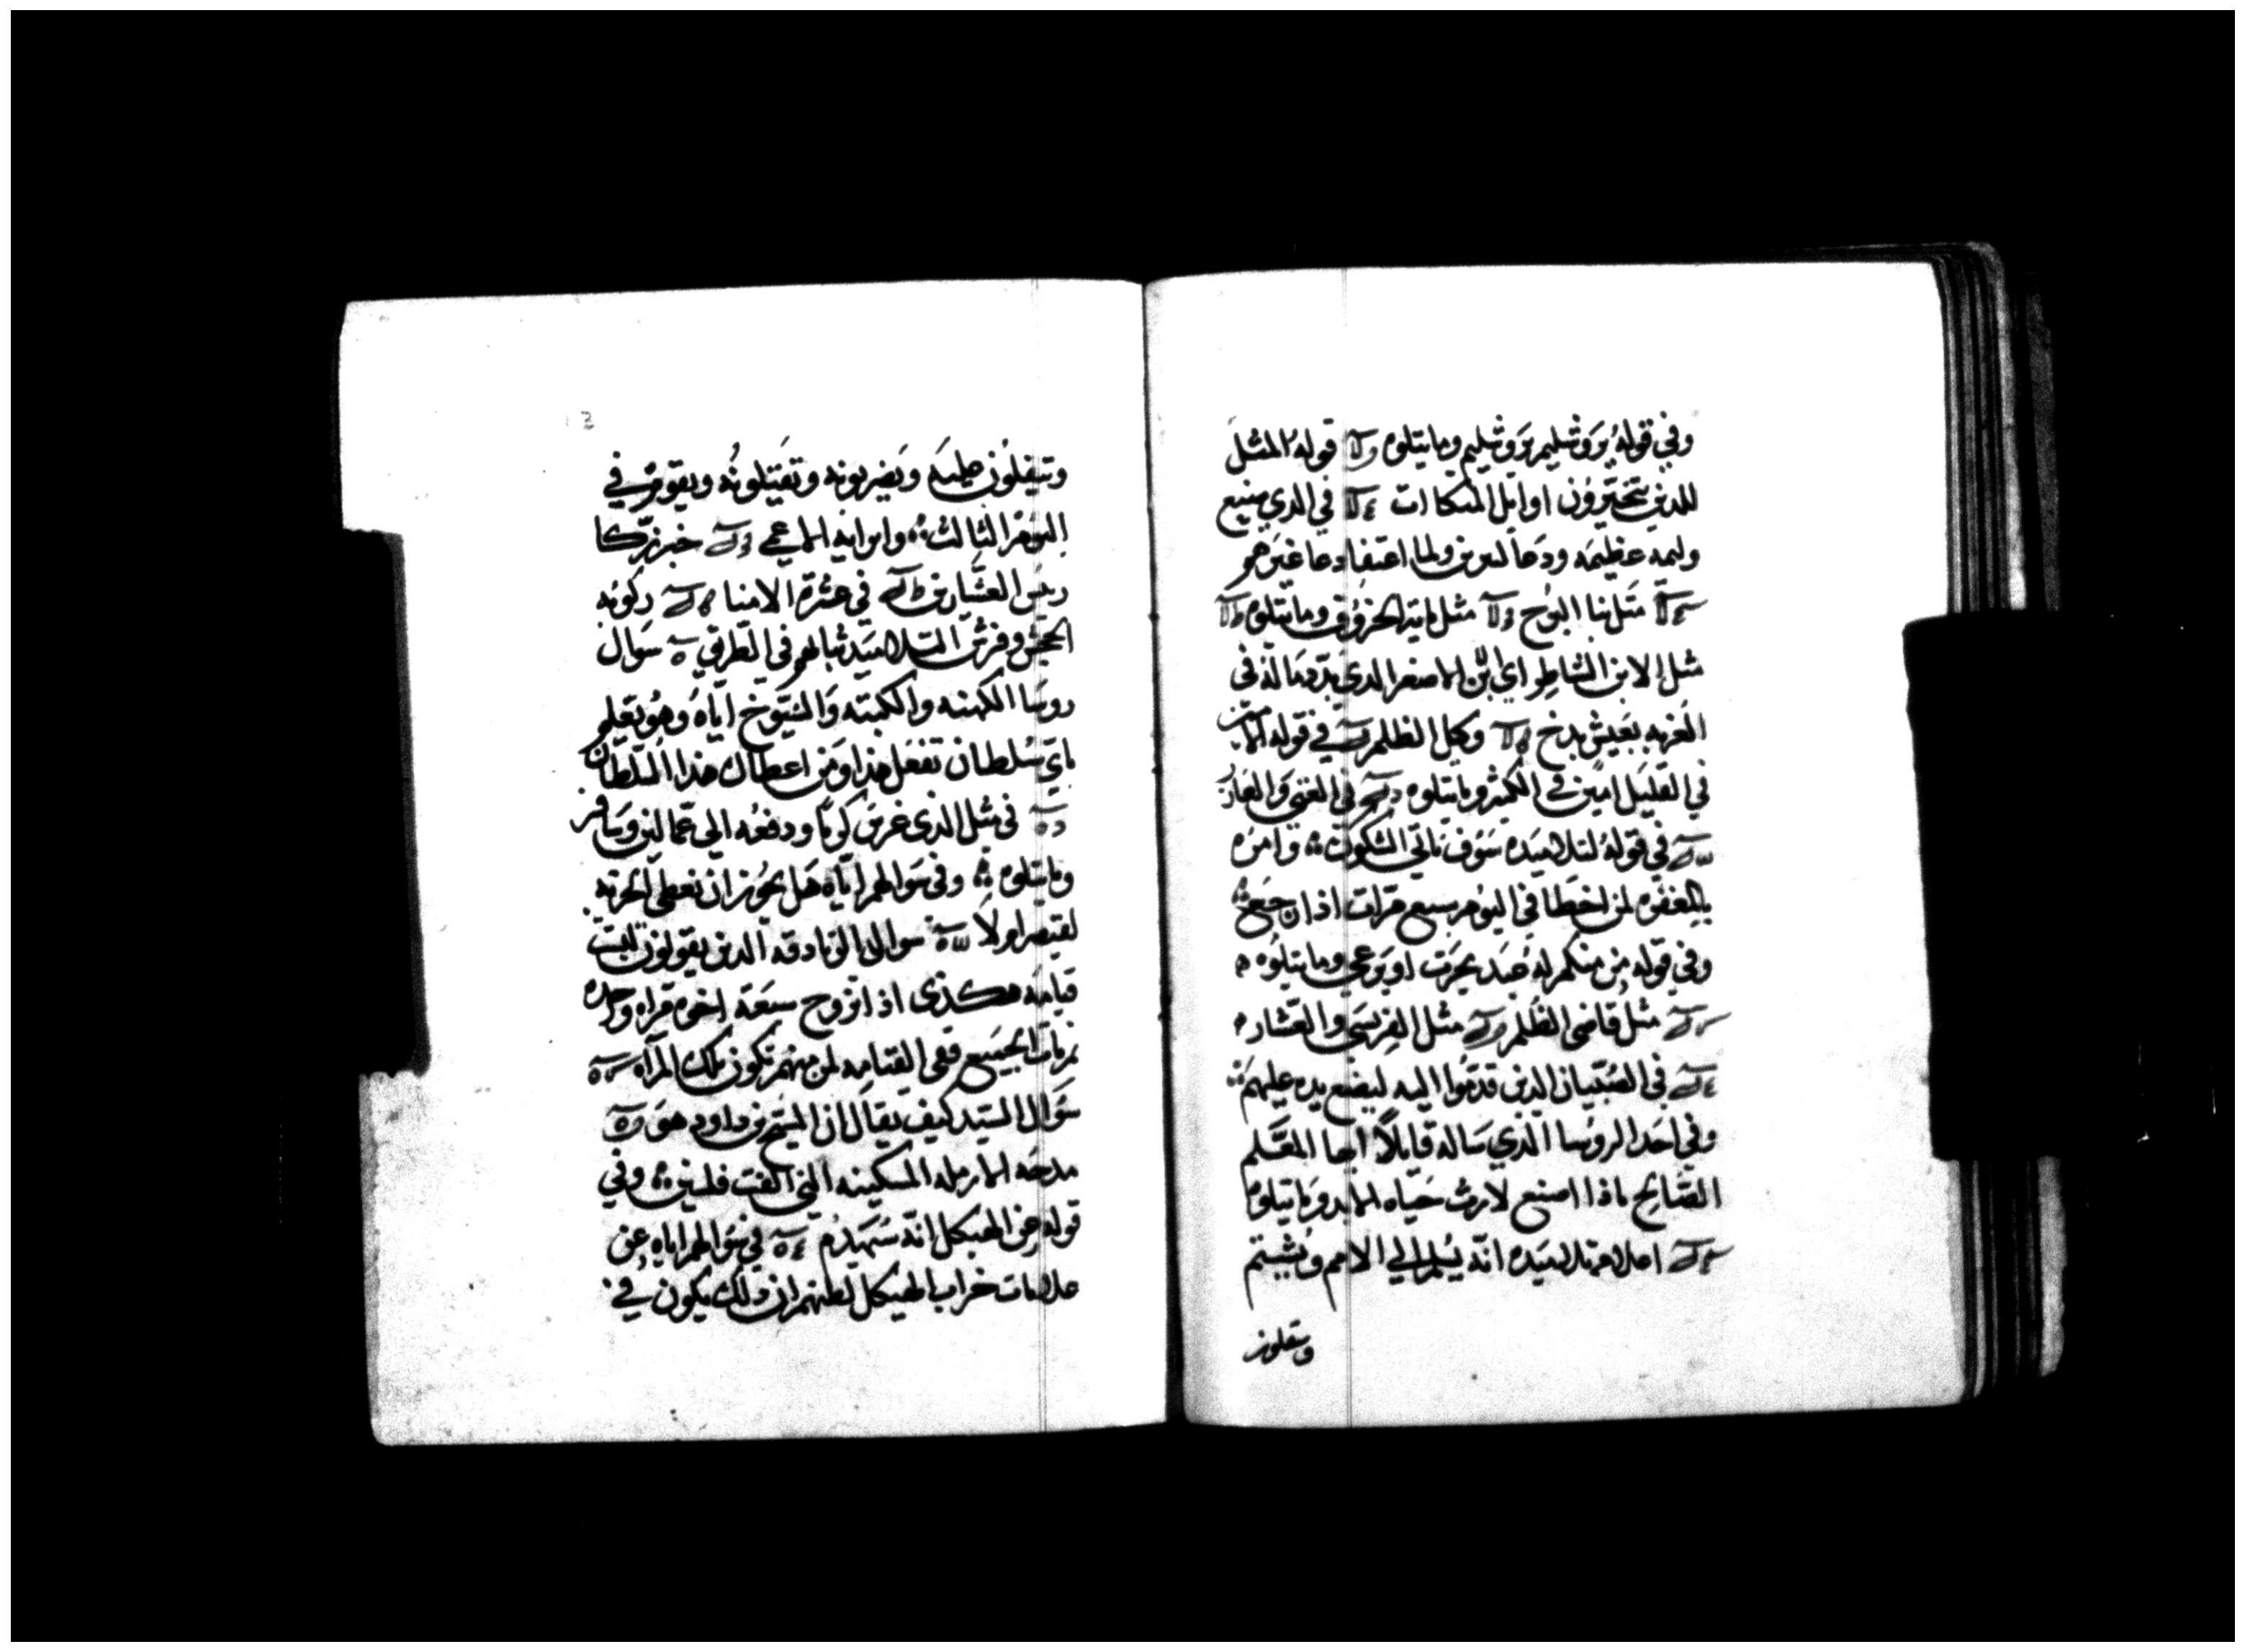 وفي قوله يروشليم يروشليم وما يتلوه قوله المثل
للدين يتخيرون اوايل المتكاات في الدي صنع
وليمه عظيمه ودعا كثيرين ولما اعتفا دعا غيرهم
مثل بنا البرج مثل ماية الخروف وما يتلوه
مثل الابن الشاطر اي ابن الاصغر الدي بدد ماله في
الغربه بعيش بدخ وكيل الظلم في قوله الامين
في القليل امين في الكثير وما يتلوه في الغني والعازر
في قوله لتلاميده سوف تاتي الشكوك وامره
بالمغفره لمن اخطا في اليوم سبع مرات اذا رجع
وفي قوله من منكم له عبد يحرت او يرعي وما يتلوه
مثل قاضي الظلم مثل الفريسي والعشار
في الصبيان الدين قدموا اليه ليضع يده عليهم
وفي احد الروسا الذي ساله قايلا ايها المعلم
الصالح ماذا اصنع لارث حياه الابد وما يتلوه
اعلامه تلاميده انه يسلم الي الامم ويشتم
ويتفلون
13
ويتفلون عليه ويضربونه ويقتلونه ويقوم في
اليوم الثالث وابرايه الاعمي خبر زكا
ريس العشارين في عشرة الامنا ركوبه
الجحش وفرش التلاميد ثيابهم في الطريق سوال
روسا الكهنه والكتبه والشيوخ اياه وهو يعلم
باي سلطان تفعل هذا ومن اعطاك هذا السلطان
في مثل الذي غرس كرما ودفعه الي عمالين وسافر
وما يتلوه وفي سوالهم اياه هل يجوز ان نعطي الجزيه
لقيصر ام لا سوال الزنادقه الدين يقولون ليت
قيامه هكذي اذا تزوج سبعة اخوه مراه واحده
ثم مات الجميع ففي القيامه لمن منهم تكون تلك المراه
سوال السيد كيف يقال ان المسيح بن داود هو
مدحه الارمله المسكينه التي القت فلسين وفي
قوله عن الهيكل انه سيهدم في سوالهم اياه عن
علامات خراب الهيكل لظنهم ان ذلك يكون في